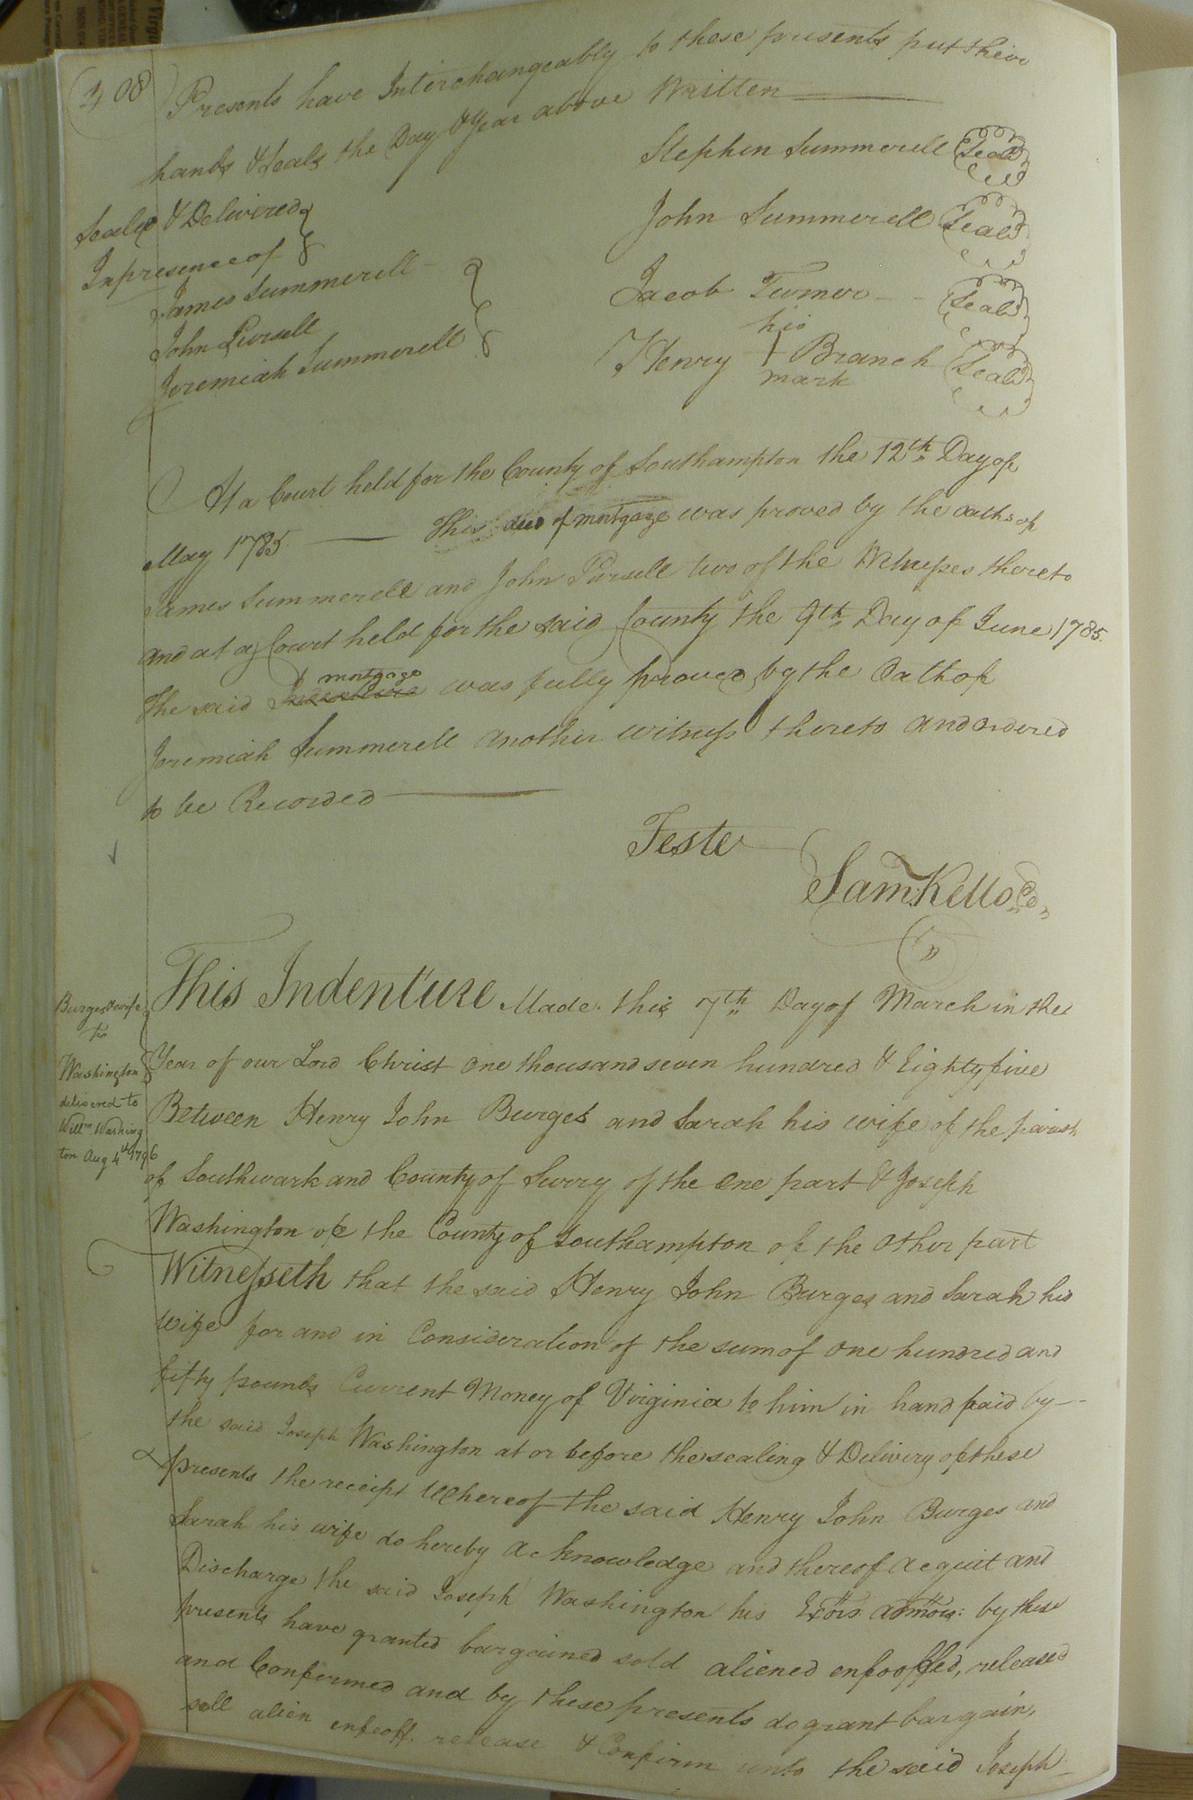 308
Presents have Interchangeably to these presents put their
hands & Seals the Day & Year above Written
Stephen Summerell (Seal)
Sealed & Delivered
John Summerell (Seal)
In presence of
James Summerell
Jacob Turner (Seal)
John Pursell
his
Henry + Branch (Seal)
mark
Jeremiah Summerell
At a Court held for the County of Southampton the 12th Day of
May 1785 This deed of mortgage was proved by the oaths of
James Summerell and John Pursell two of the Witnesses thereto
and at a Court held for the said County the 9th Day of June 1785.
mortgage
The said was fully proved by the Oath of
Jeremiah Summerell another witness thereto and ordered
to be Recorded
Teste
Sam Kello
This Indenture Made this 7th Day of March in the
Year of our Lord Christ one thousand seven hundred & Eighty five
Between Henry John Burges and Sarah his wife of the parish
of Southwark and County of Surry of the one part & Joseph
Washington of the County of Southampton of the other part
Witnesseth that the said Henry John Burges and Sarah his
wife for and in Consideration of the sum of one hundred and
fifty pounds Current Money of Virginia to him in hand paid by
the said Joseph Washington at or before the sealing & Delivery of these
presents the receipt Whereof the said Henry John Burges and
Sarah his wife do hereby acknowledge and thereof acquit and
Discharge the said Joseph Washington his Exors admors: by these
presents have granted bargained sold aliened enfeoffed, released
and Confirmed and by these presents do grant bargain,
sell alien enfeoff. release & Confirm unto the said Joseph
Burges & wife
to
Washington
delivered to
Willm Washing
ton Aug 4th 1796